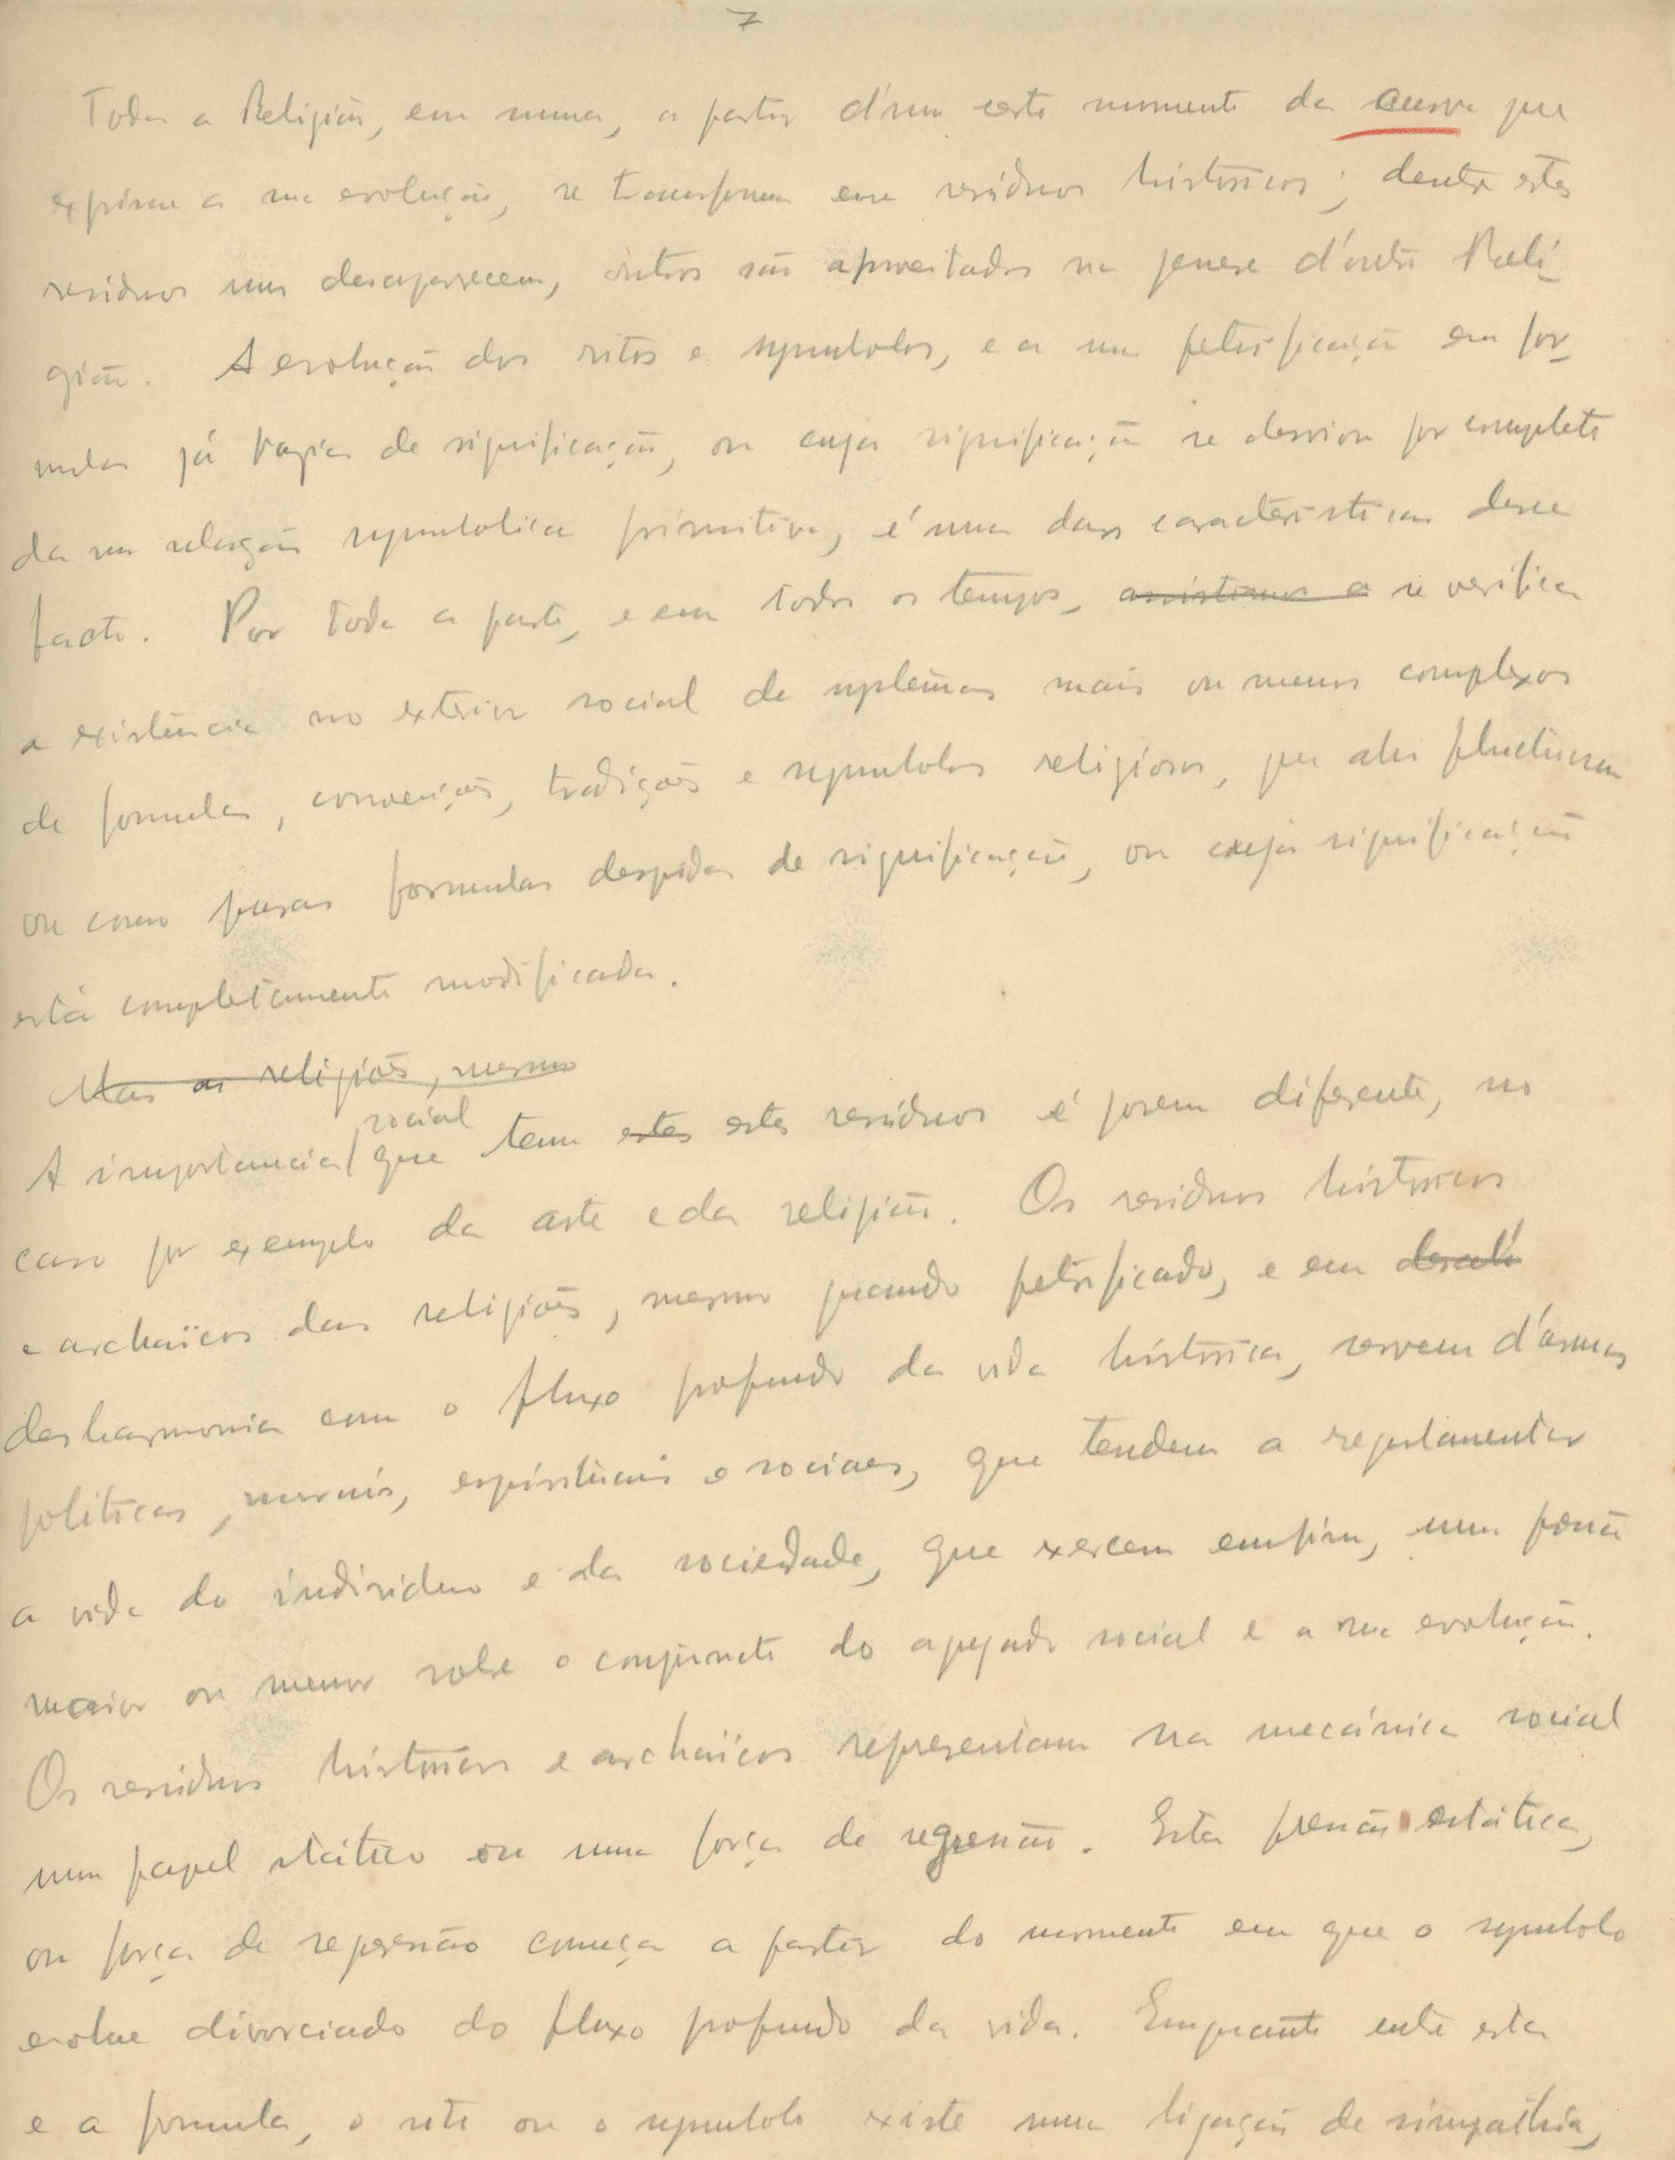 7
Toda a Religião, em suma, a partir d'um certo momento da curva que
exprime a sua evolução, se transforma em residuos historicos; dentre estes
residuos uns desaparecem, outros são aproveitados na genese d'outra Reli-
gião. A evolução dos ritos e symbolos, e a sua petrificação em for-
mulas já vazias de significação, ou cuja significação se desviou por completo
da sua relação symbolica primitiva, é uma das caracteristicas desse
facto. Por toda a parte, e em todos os tempos, assistimos a se verifica
a existência no exterior social de systemas mais ou menos complexos
de formulas, convenções, tradições e symbolos religiosos, que ali fluctuam
ou como puras formulas despidas de significação, ou cuja significação
está completamente modificada.
Mas as religiões, mesmo
social
A importancia que tem estes estes residuos é porem diferente, no
caso por exemplo da arte e da religião. Os residuos historicos
e archaïcos das religiões, mesmo quando petrificados, e em
desharmonia com o fluxo profundo da vida historica, servem d'armas
politicas, moraes, espirituais e sociaes, que tendem a regulamentar
a vida do individuo e da sociedade, que exercem emfim, uma pressão
maior ou menor sobre o conjuncto do agregado social e a sua evolução.
Os residuos historicos e archaïcos representam na mecánica social
um papel stático ou uma força de regressão. Esta pressão estática,
ou força de regressão começa a partir do momento em que o symbolo
evolue divorciado do fluxo profundo da vida. Emquanto entre esta
e a formula, o rito ou o symbolo existe uma ligação de simpathia,